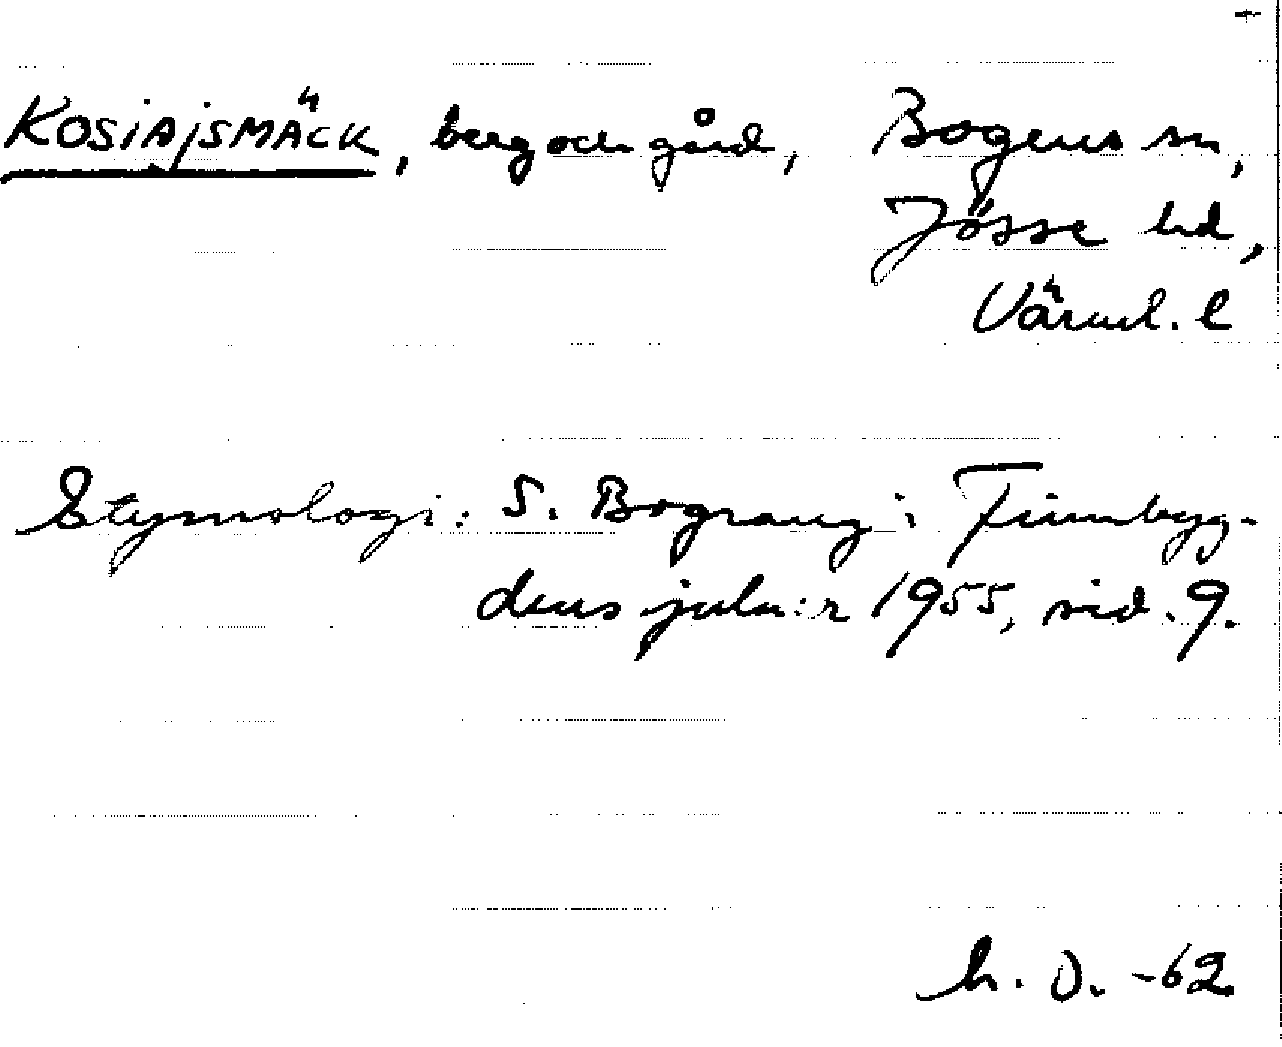 KOSIAJSMÄCK, berg och gård, Bogens sn,
Jösse hd,
Värml. l
Etymologi: S. Bograng i Finnbyg-
dens julnr 1955, sid. 9.
h. O. -62